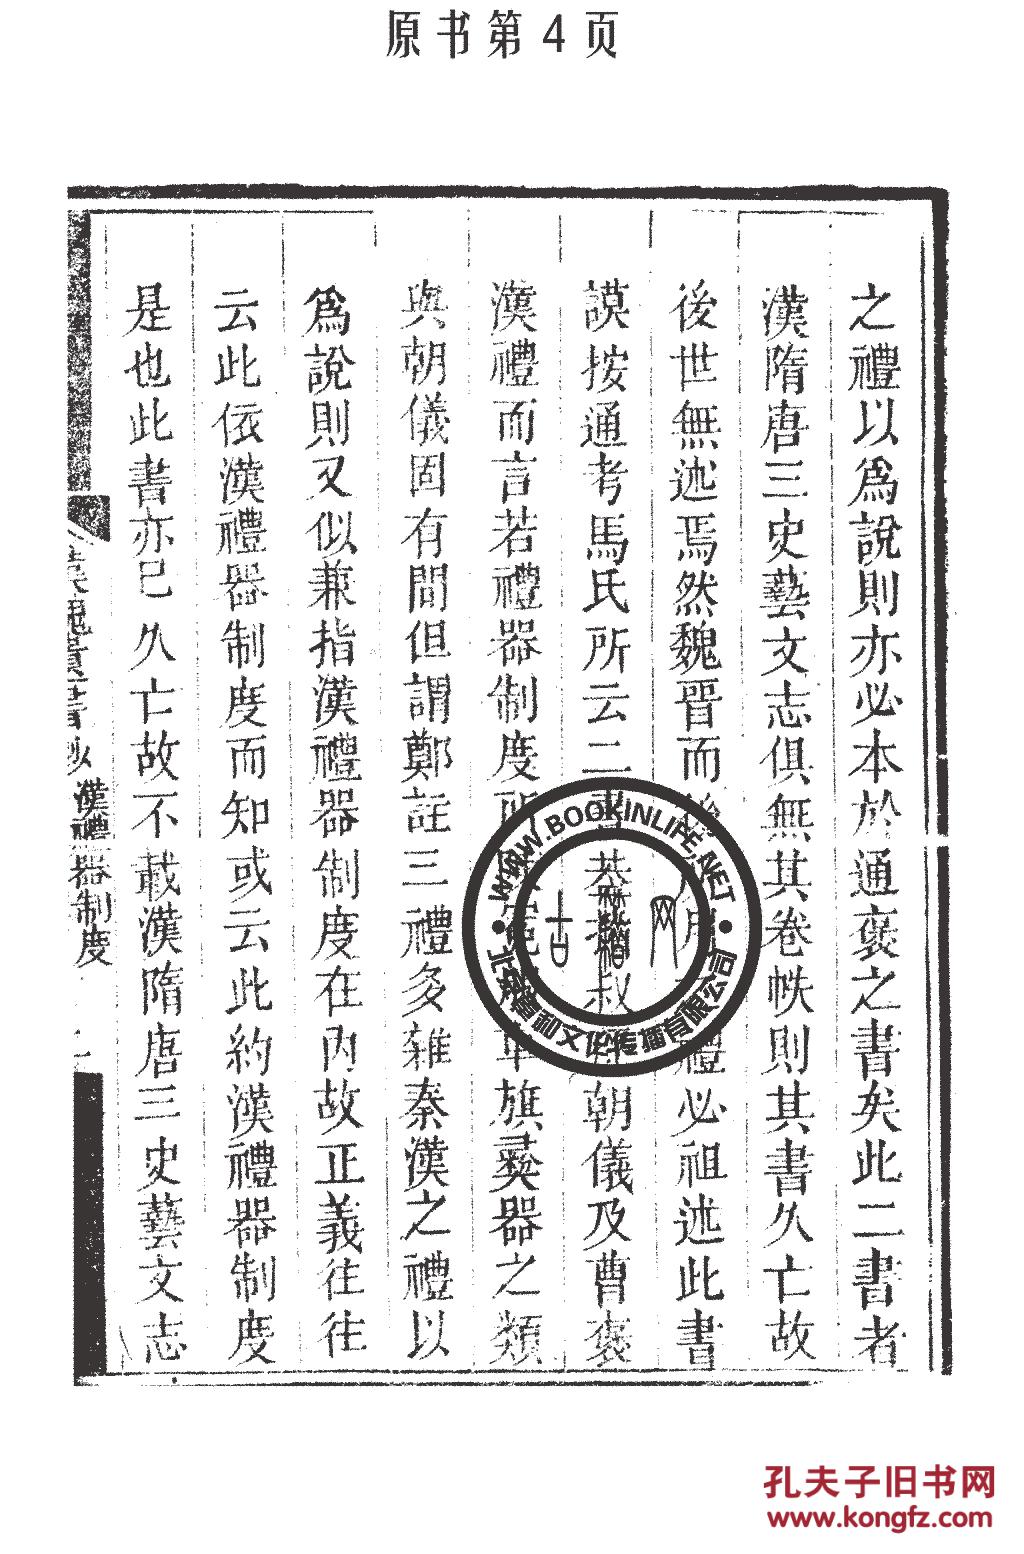 原书第4页
之禮以爲說則亦必本於通褒之書矣此二書者
漢隋唐三史藝文志俱無其卷帙則其書久亡故
後世無述焉然魏晋而後禮必祖述此書
謨按通考馬氏所云二書葢指叔朝儀及曹褒
漢禮而言若禮器制度所車旗彝器之類
與朝儀固有間但謂鄭註三禮多雜秦漢之禮以
爲說則又似兼指漢禮器制度在內故正義往往
云此依漢禮器制度而知或云此約漢禮器制度
是也此書亦已久亡故不載漢隋唐三史藝文志
漢魏遺書鈔 漢禮器制度 二
WWW.BOOKINLIFE.NET
网
古
孔夫子旧书网
www.kongfz.com